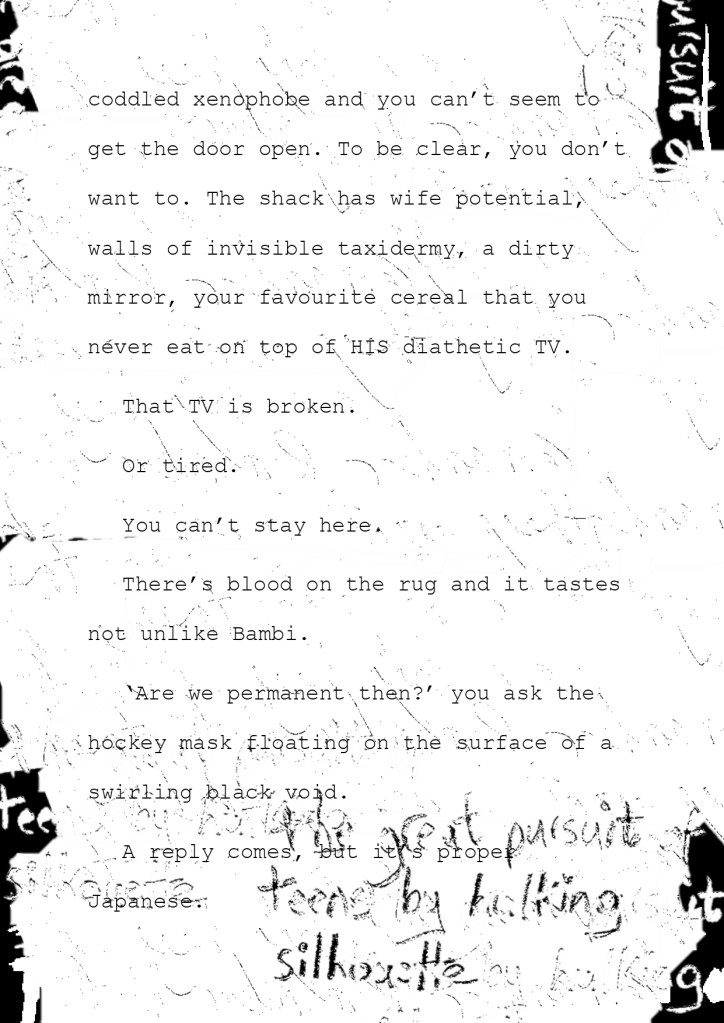 coddled xenophobe and you can’t seem to
get the door open. To be clear, you don’t
want to. The shack has wife potential,
walls of invisible taxidermy, a dirty
mirror, your favourite cereal that you
never eat on top of HIS diathetic TV.
That TV is broken.
Or tired.
You can’t stay here.
There’s blood on the rug and it tastes
not unlike Bambi.
‘Are we permanent then?’ you ask the
hockey mask floating on the surface of a
swirling black void.
A reply comes, but it’s proper
Japanese.
the great pursuit of
teens by hulking
silhouette
by hulking
pursuit of
tee
silhouette